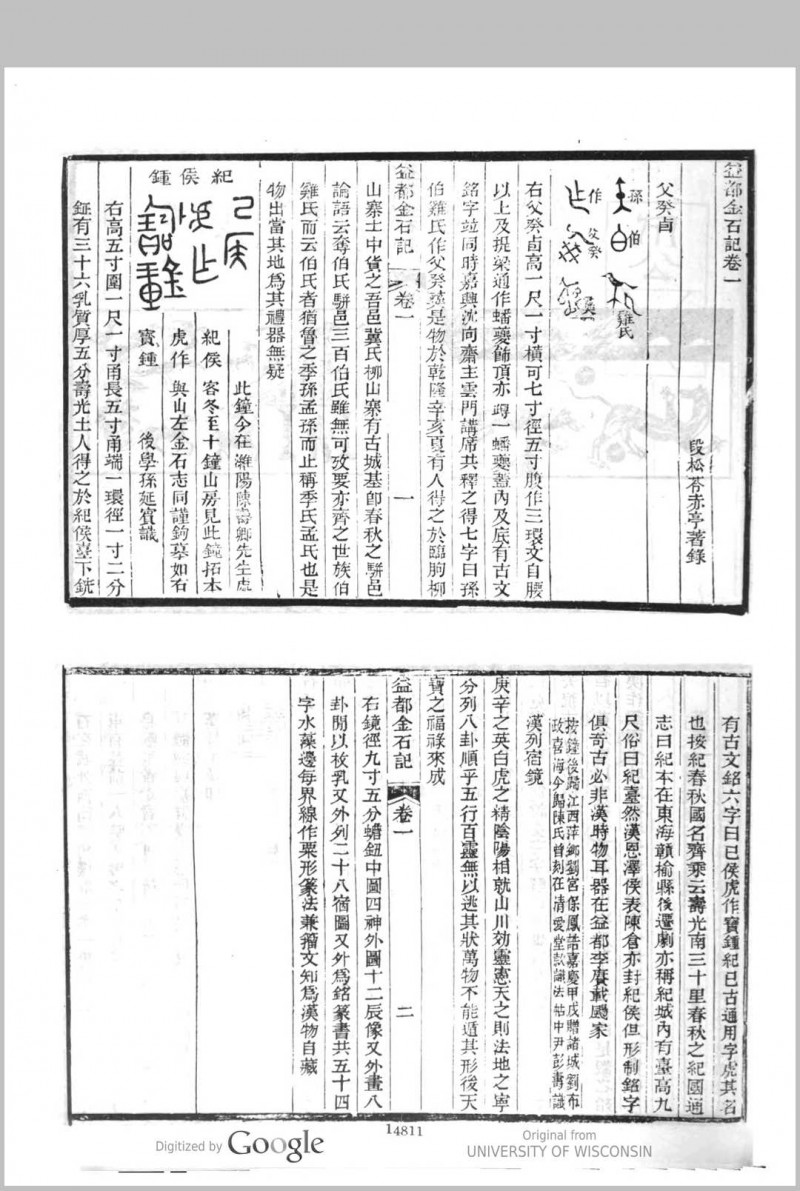 益都金石記卷一
段松苓赤亭著錄
父癸卣
孫 伯 雞氏
作 父癸 彝
右父癸卣高一尺一寸橫可七寸徑五寸腹作三環文自腰
以上及提梁通作蟠夔飾頂亦蹲一蟠夔蓋內及底有古文
銘字竝同時嘉興沈向齋主雲門講席共釋之得七字曰孫
伯雞氏作父癸彝是物於乾隆辛亥夏有人得之於臨朐柳
益都金石記 卷一 一
山寨士中貨之吾邑冀氏柳山寨有古城基卽春秋之駢邑
論語云奪伯氏駢邑三百伯氏雖無可攷要亦齊之世族伯
雞氏而云伯氏者猶魯之季孫孟孫而止稱季氏孟氏也是
物出當其地爲其禮器無疑
紀侯鍾
此鐘今在濰陽陳壽卿先生處
紀侯 客冬至十鐘山房見此鐘拓本
虎作 與山左金石志同謹鉤摹如右
寶鍾 後學孫延賓識
右高五寸圍一尺一寸甬長五寸甬端一環徑一寸二分
鉦有三十六乳質厚五分壽光土人得之於紀侯臺下銑
有古文銘六字曰己侯虎作寶鍾紀己古通用字虎其名
也按紀春秋國名齊乘云壽光南三十里春秋之紀國通
志曰紀本在東海贛榆縣後遷劇亦稱紀城內有臺高九
尺俗曰紀臺然漢恩澤侯表陳倉亦封紀侯但形制銘字
俱奇古必非漢時物耳器在益都李廣載颺家
按鐘後歸江西萍鄉劉宮保鳳誥嘉慶甲戌贈諸城劉布
政喜海今歸陳氏曾刻在清愛堂款識法帖中尹彭壽識
漢列宿鏡
庚辛之英白虎之精陰陽相就山川効靈憲天之則法地之寧
分列八卦順乎五行百靈無以逃其狀萬物不能遁其形後天
寶之福祿來成
益都金石記 卷一 二
右鏡徑九寸五分蟾鈕中圖四神外圖十二辰像又外畫八
卦閒以枚乳又外列二十八宿圖又外爲銘篆書共五十四
字水藻邊每界線作粟形篆法兼籀文知爲漢物自藏
14811
Digitized by Google
Original from
UNIVERSITY OF WISCONSIN